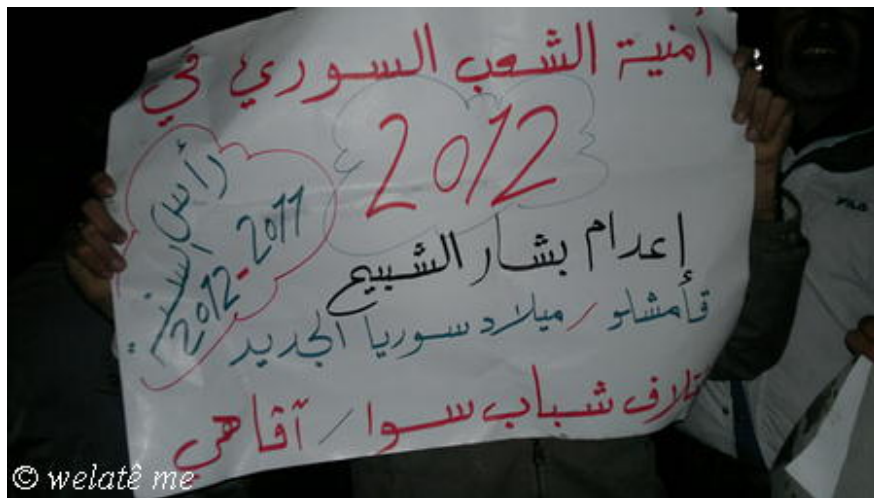 أمنية الشعب السوري في
2012
رأس السنة
2012-2011
إعدام بشار الشبيح
قامشلو / ميلاد سوريا الجديد
شباب سوا / آفاهي
FILA
© welatê me